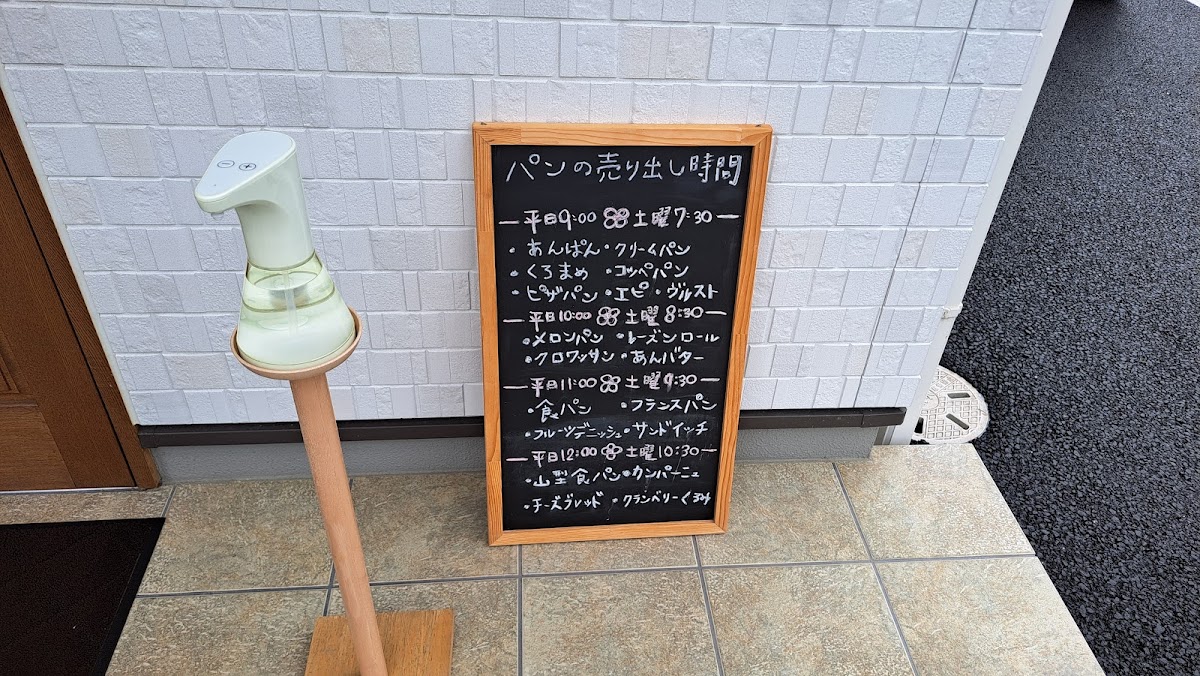 パンの売り出し時間
平日9:00 土曜7:30
・あんぱん・クリームパン
・くろまめ ・コッペパン
・ピザパン ・エピ ・ヴルスト
平日10:00 土曜8:30
・メロンパン ・レーズンロール
・クロワッサン ・あんバター
平日11:00 土曜9:30
・食パン ・フランスパン
・フルーツデニッシュ・サンドイッチ
平日12:00 土曜10:30
・山型食パン・カンパーニュ
・チーズブレッド ・クランベリーくるみ